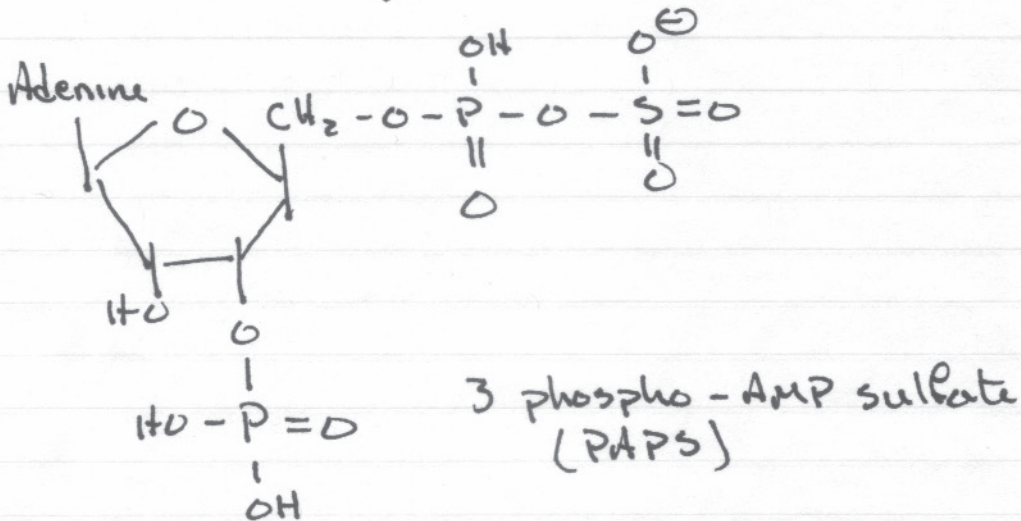 OH O⊖
Adenine O CH₂ - O - P - O - S = O
O O
HO
O
HO - P = O
OH
3 phospho - AMP sulfate
(PAPS)